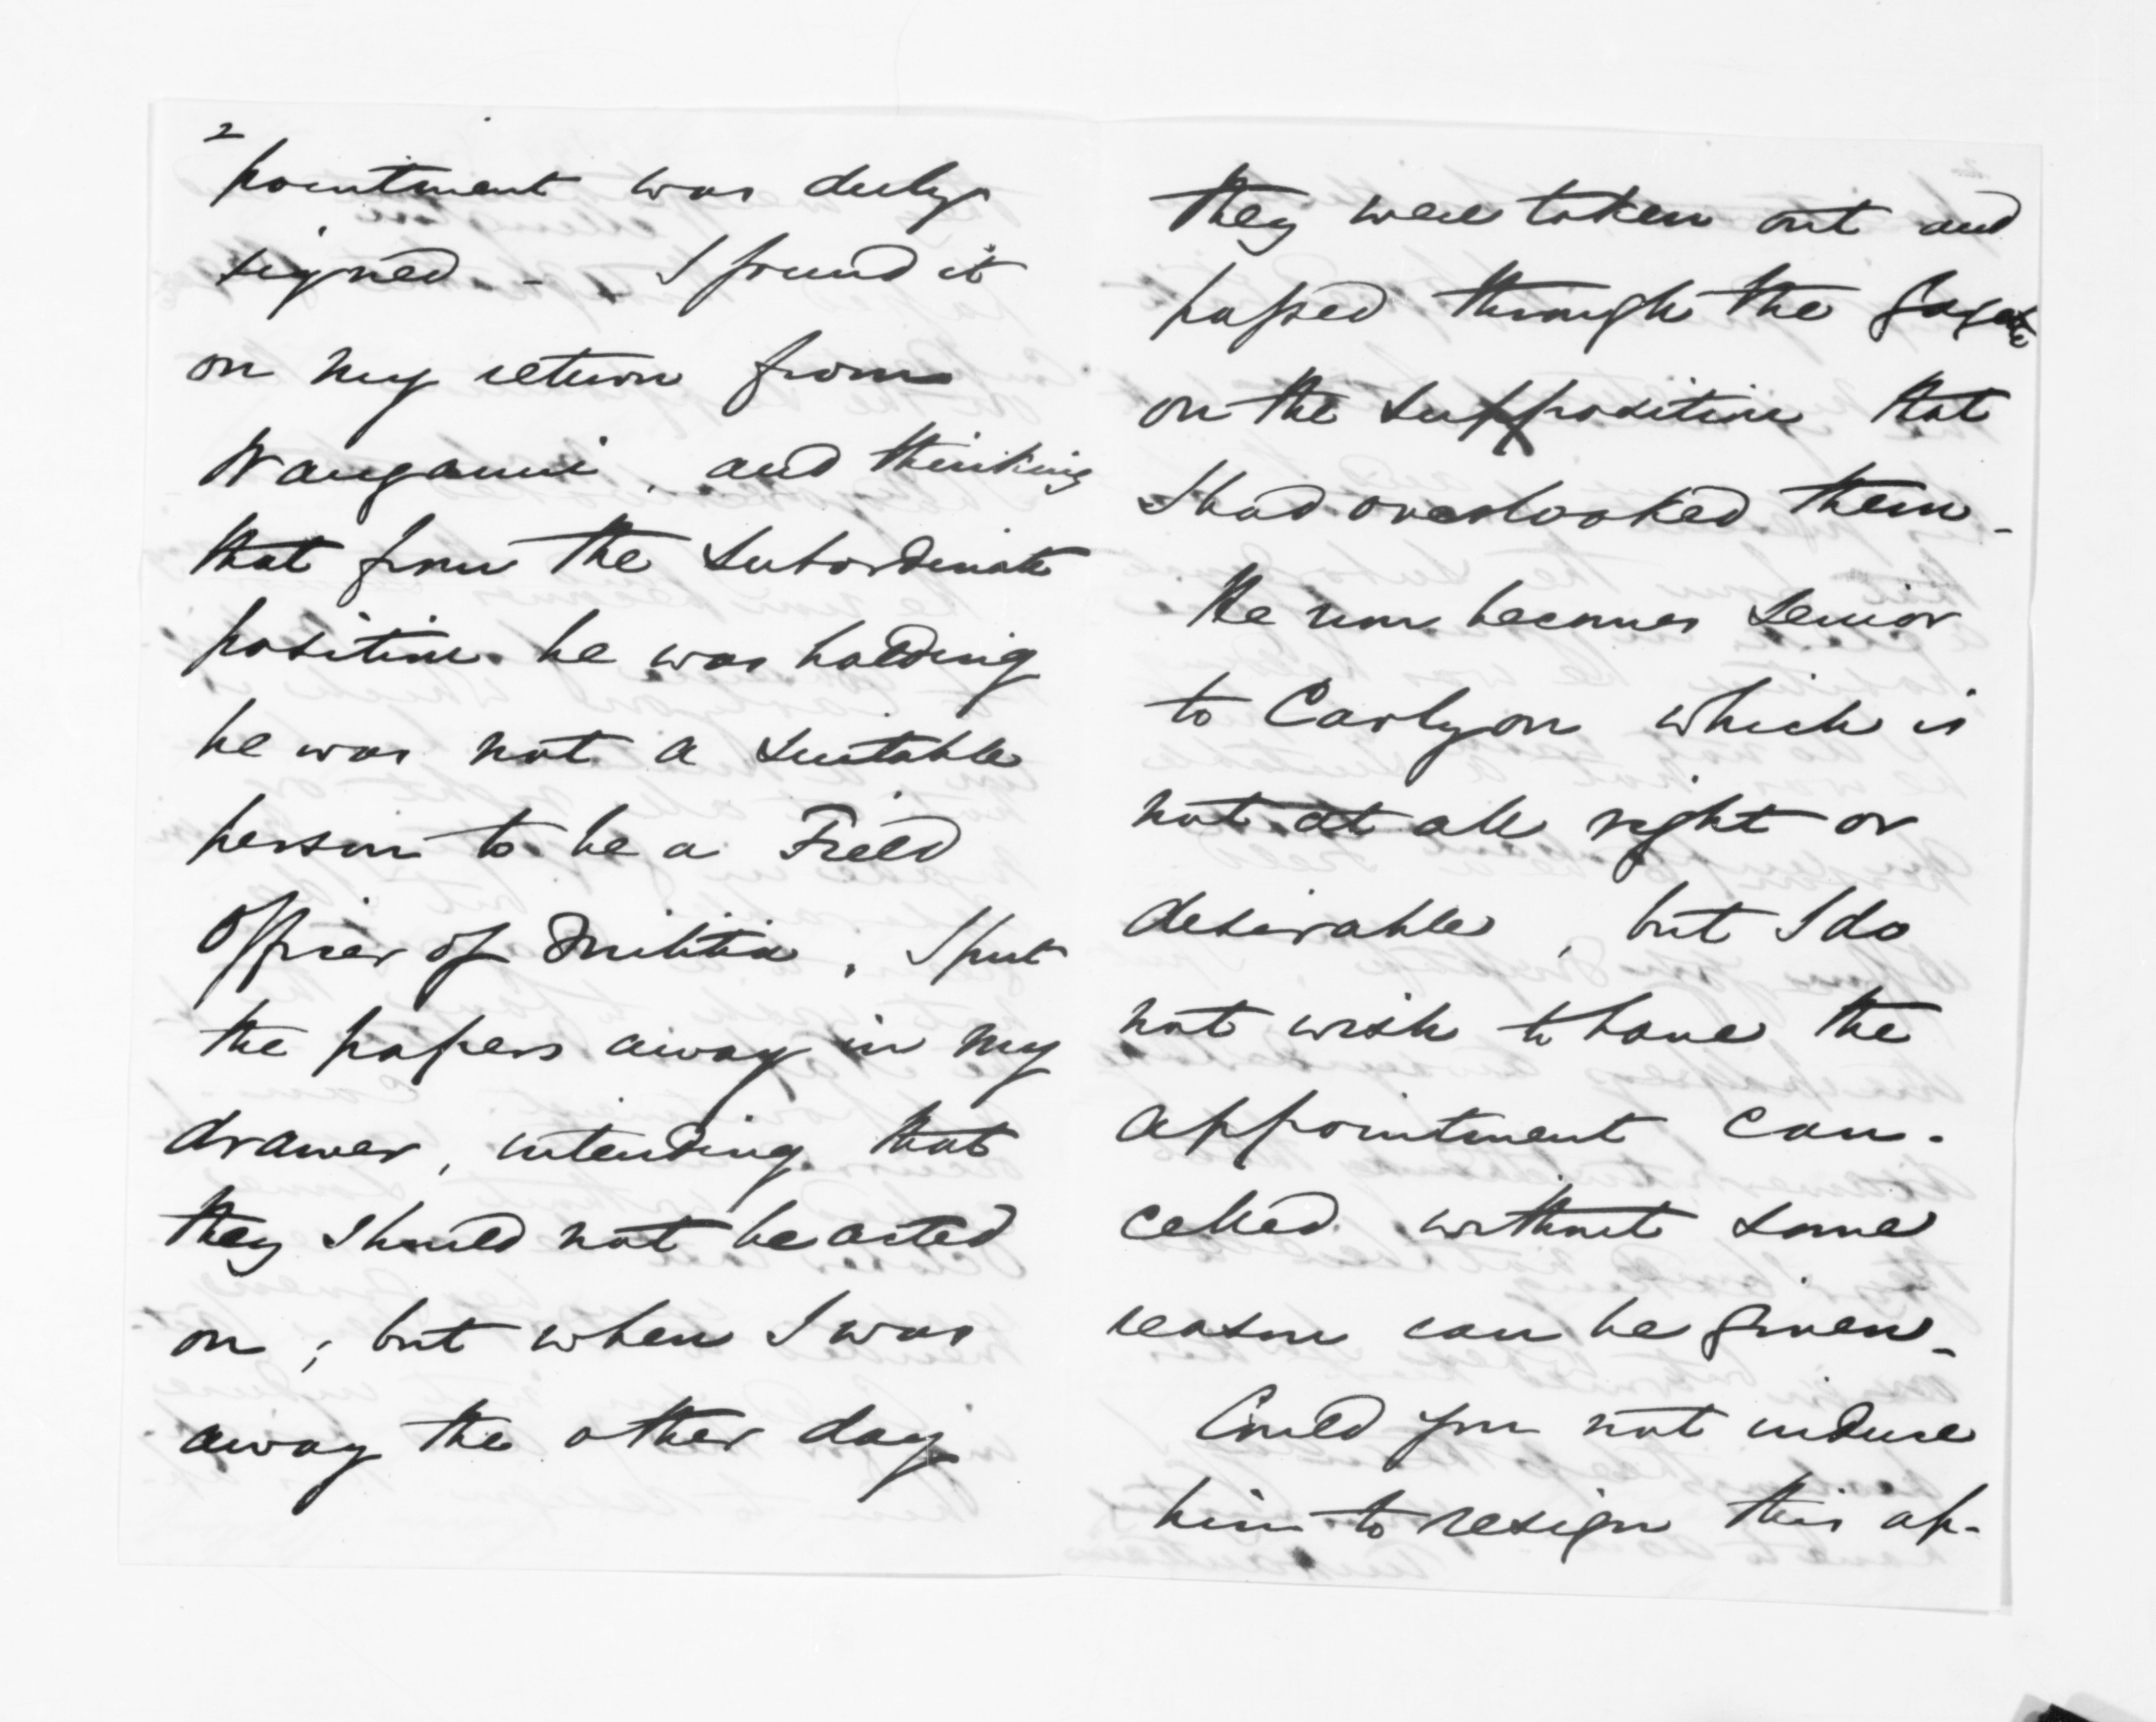 2
pointment was duly
signed - . I found it
on my return from
Wanganui, and thinking
that from the subordinate
position he was holding
he was not a suitable
person to be a Field
Officer of Militia, I put
the papers away in my
drawer, intending that
they should not be acted
on; but when I was
away the other day
they were taken out and
passed through the Gazette
on the supposition that
I had overlooked them -
He now becomes senior
to Carlyon which is
not at all right or
desirable, but I do
not wish to have the
appointment can-
celled without some
reason can be given -
Could you not induce
him to resign this ap-